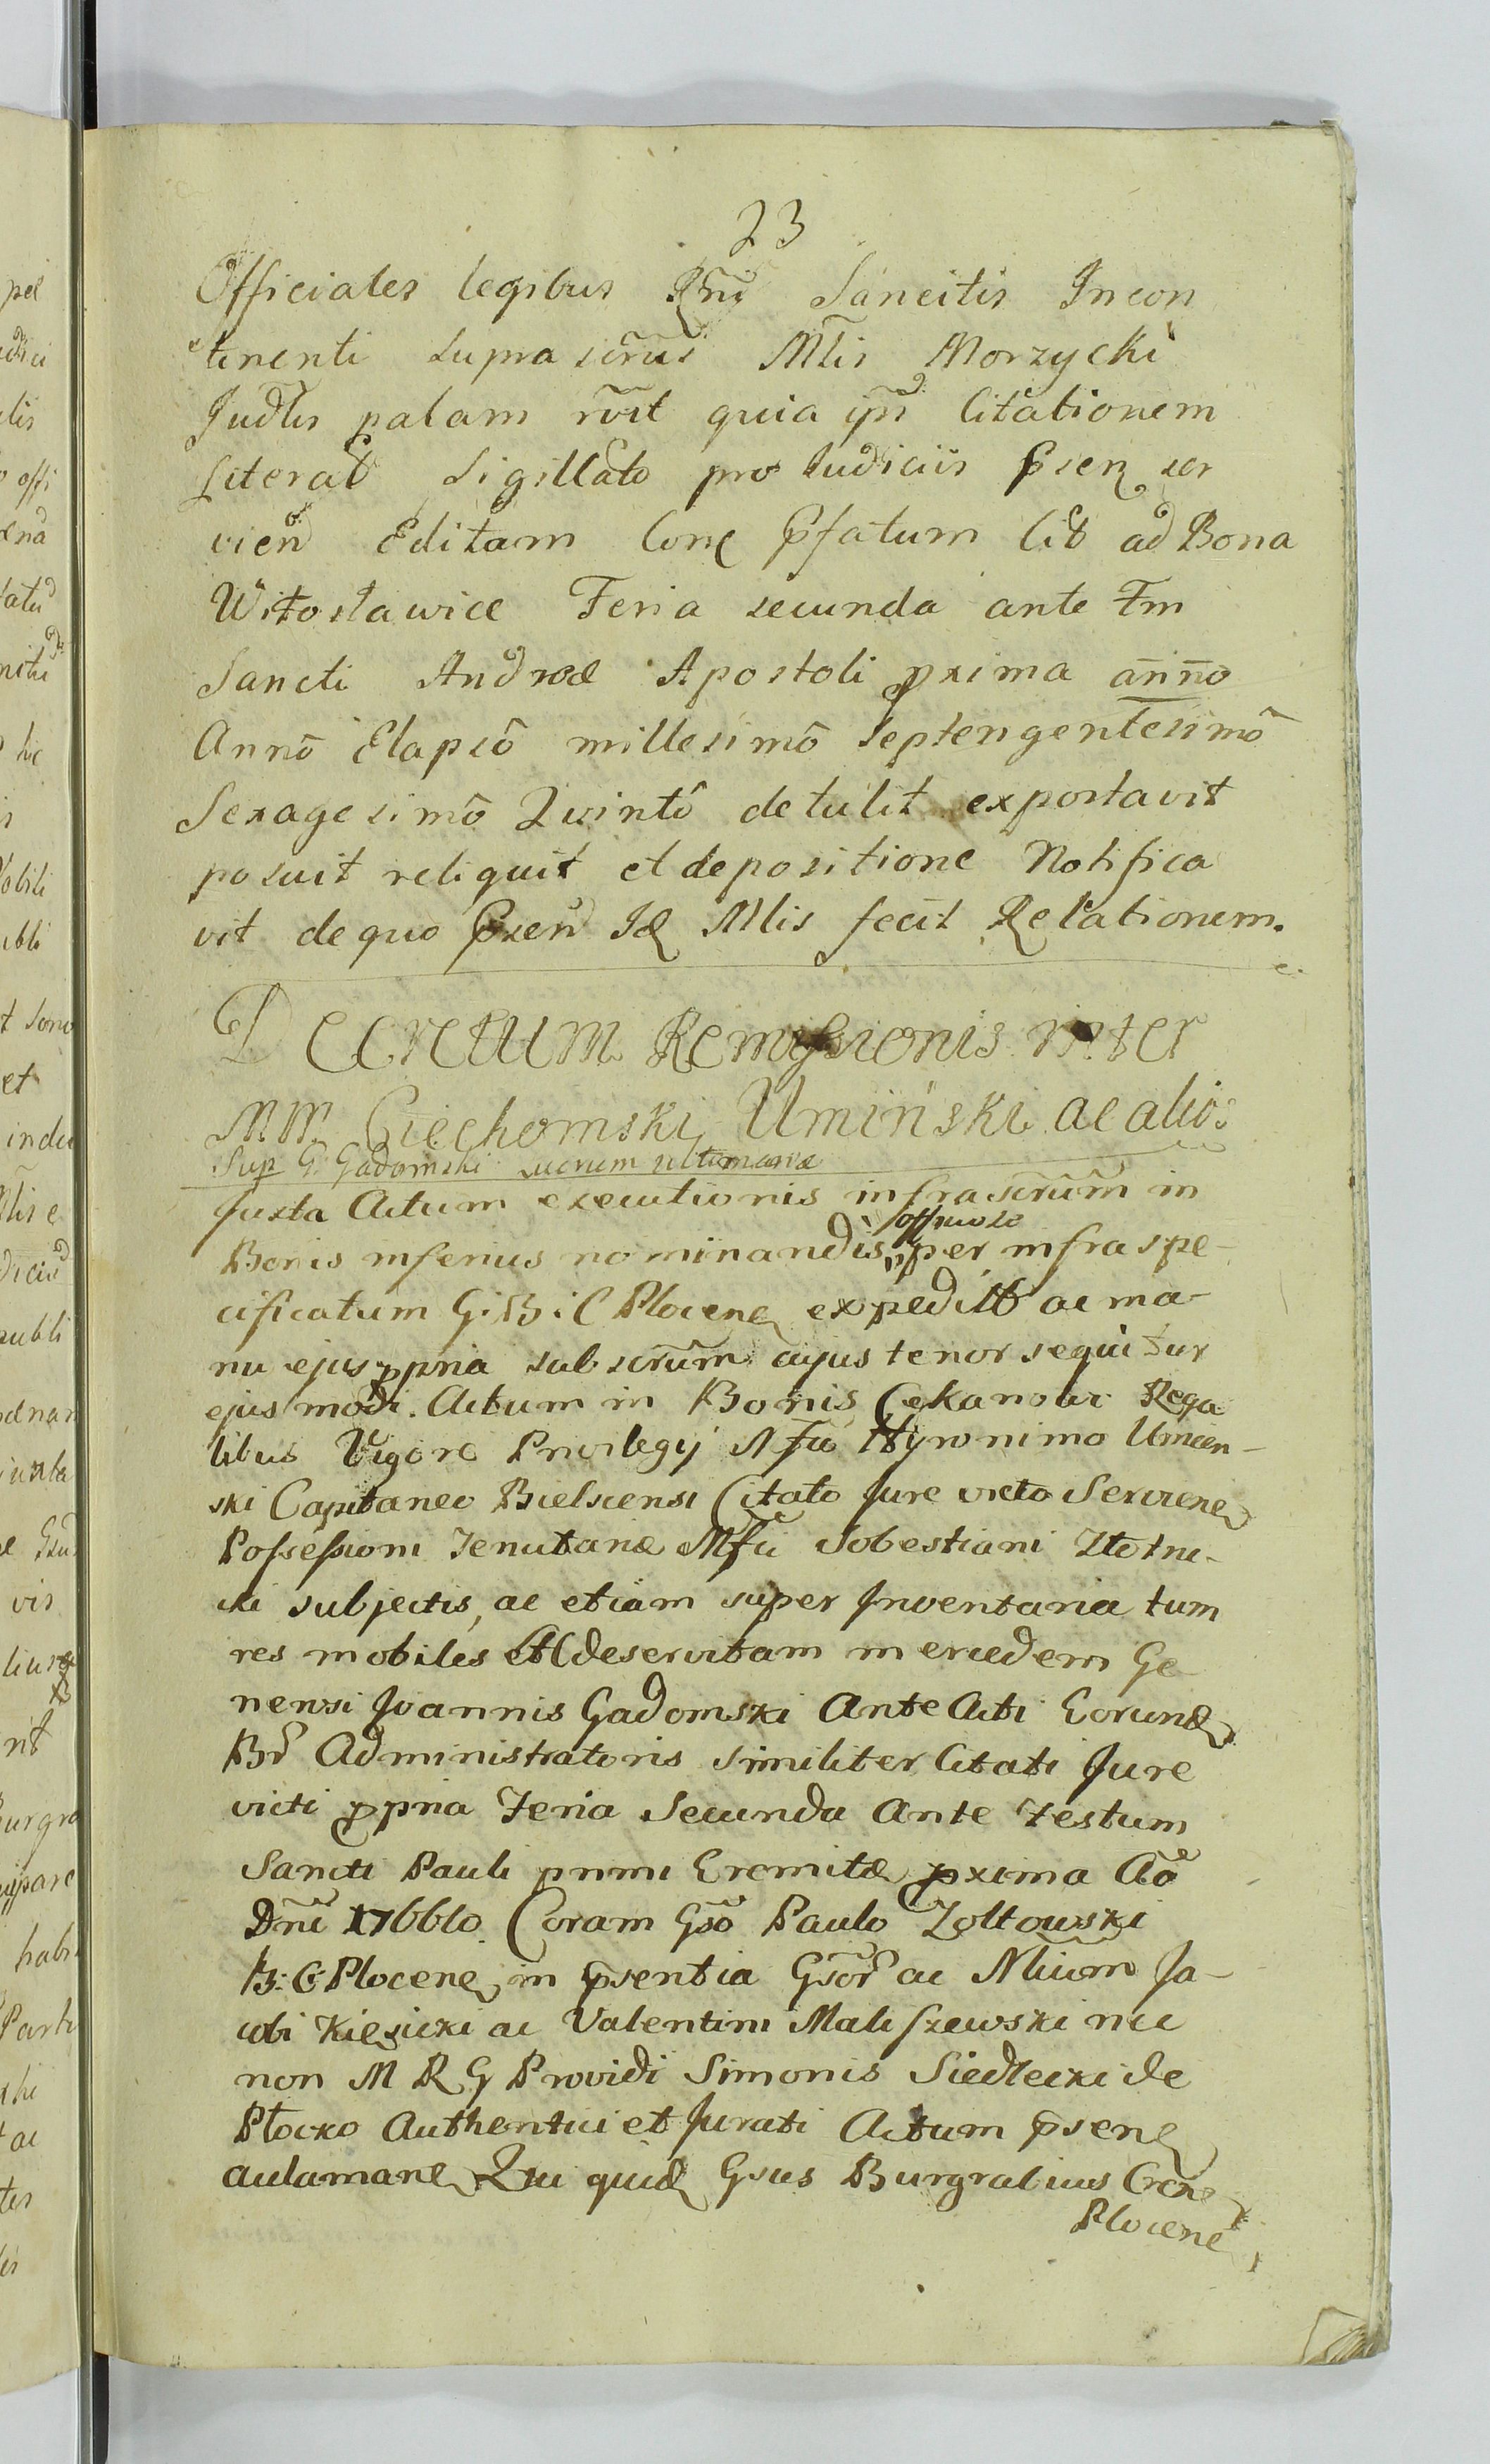 23
Officiales legibus Rñi Sancitis Incon
tinenti supra scrñs Mlis Morzycki
Judlis palam rvit quia ipñ Citationem
Literat Sigillato pro Iudiciis Psen ser
vieñ Editam Conc Psfatum Cit ad Bona
Witosławice Feria secunda ante Fm
Sancti Andreæ Apostoli pxima añño
Annô Elapsô millesimô septengentesimô
Sexagesimô Quintô detulit exportavit
posuit reliquit et depositione Notifica
vit de quo Psen Id Mlis fecit Relationem.
Decretum Remissionis inter
M.M. Ciechomski Umiński ac alios
Sup G. Gadomski
Juxta Actum executionis infrascrûm in
Bonis inferius nominandis officiose per infraspe-
cificatum G: B: C Plocene expedit ac ma-
nu ejus ppria subscrûm cujus tenor sequitur
ejusmodi. Actum in Bonis Cekanow Rega
libus Vigore Privilegij Mfco Hyronimo Umien-
ski Capitaneo Bielscensi Citato Jure victo Serviene
Possessioni Tenutariæ Mfci Sobestiani Zlotni-
cki subjectis, ac etiam super Inventaria tum
res mobiles et deservitam mercedem Ge
nerosi Joannis Gadomski Ante Acti Eorund
Br Administratoris similiter Citati Jure
victi ppria Feria Secunda Ante Festum
Sancti Pauli primi Eremitæ pxima Aõ
Dñi 1766to. Coram Gso Paulo Zoltowski
B: C: Plocene, in psentia Gsor ac Nlium Ja-
cobi Kiesicki ac Valentini Maliszewski nec
non M R G Providi Simonis Siedlecki de
Płocko Authentici et Jurati Actum psene
aulamane Qui quid Gsus Burgrabius Crene
Plocene